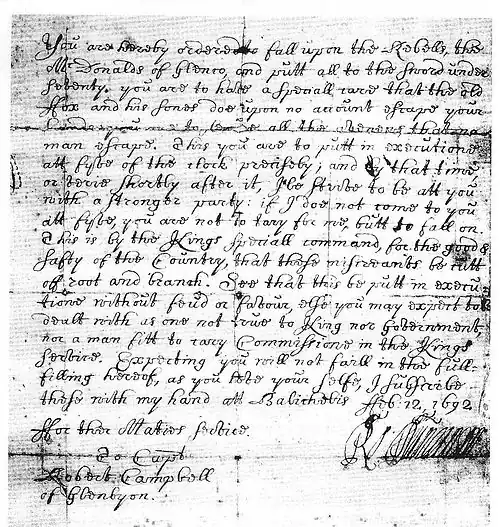 You are hereby ordered to fall upon the Rebells, the
McDonalds of Glenco, and putt all to the sword under
seventy. you are to have a speciall care that the old
ffox and his sones doe upon no account escape your
hands, you are to secure all the avenues that no
man escape. This you are to putt in executione
att fyve of the clock precisely; and by that time
or verie shortly after it, I'le stryve to be att you
with a stronger party: if I doe not come to you
att fyve, you are not to tary for me, butt to fall on.
This is by the Kings speciall command, for the good &
safty of the Country, that these miscreants be cutt
off root and branch. See that this be putt in execu
tione without feud or favour, else you may expect to be
dealt with as one not true to King nor Government
nor a man fitt to cary Commissione in the Kings
service. Expecting you will not faill in the full-
filling hereof, as you love your selfe, I subscribe
these with my hand att Balicholis Feb: 12, 1692
ffor ther Maties service
To Capt
Robert Campbell
of Glenlyon.